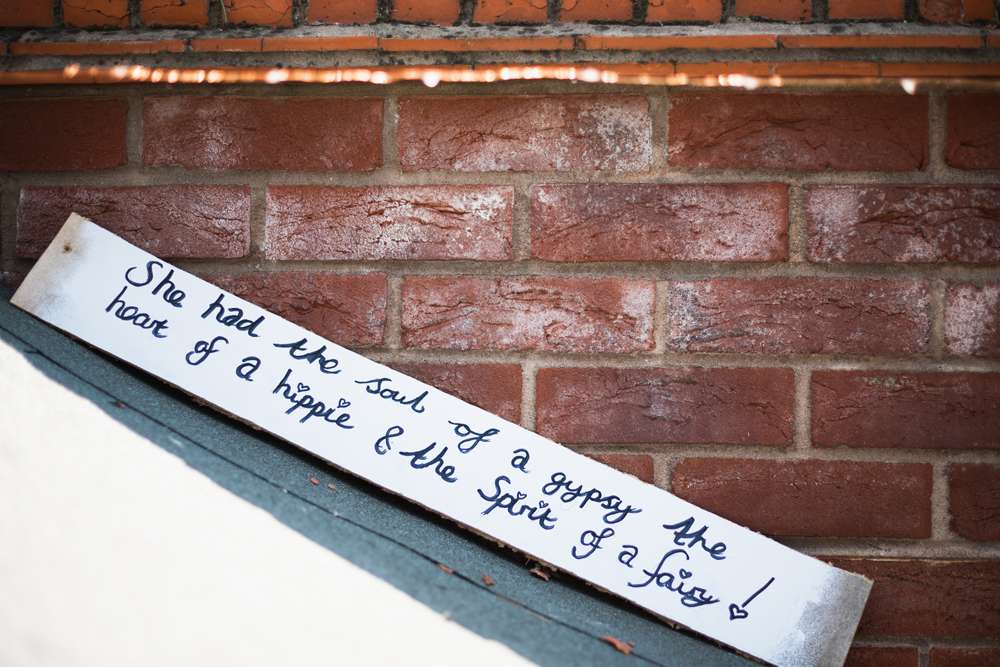 She had the soul of a gypsy the
heart of a hippie & the Spirit of a fairy!